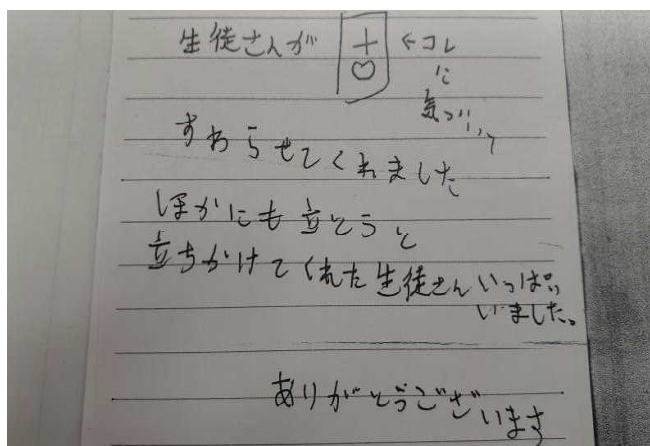 生徒さんが ←コレ
に
気づいて
すわらせてくれました
ほかにも立とうと
立ちかけてくれた生徒さんいっぱい
いました。
ありがとうございます